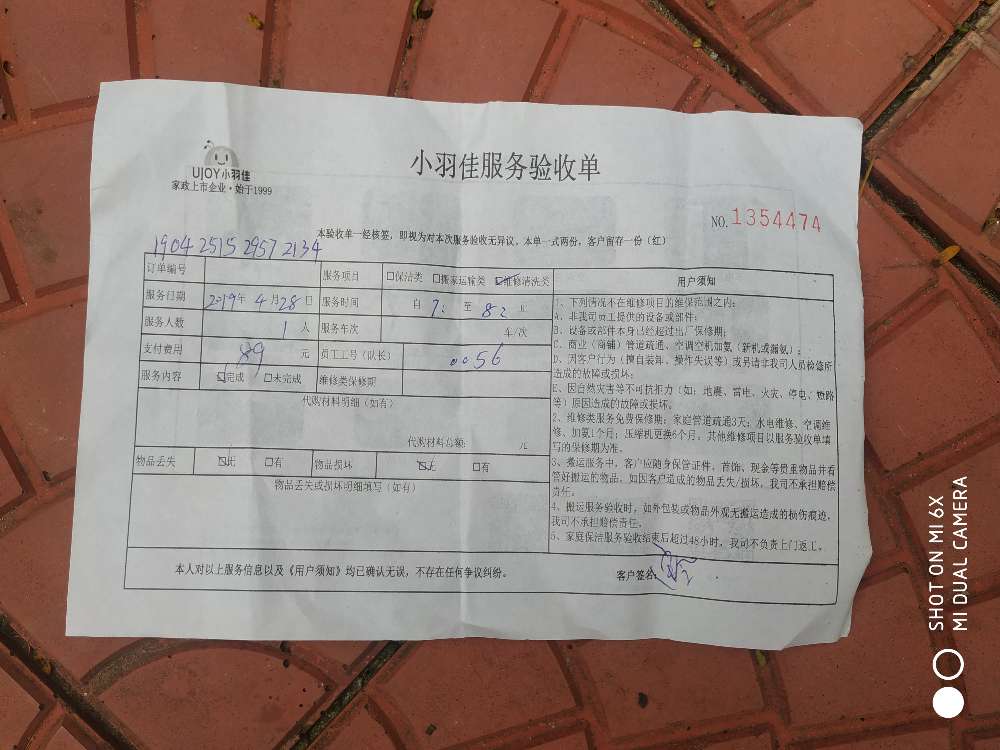 UJOY小羽佳
家政上市企业·始于1999
小羽佳服务验收单
NO. 1354474
本验收单一经核签，即视为对本次服务验收无异议，本单一式两份，客户留存一份（红）
1904 2515 2957 2134
订单编号 服务项目 □保洁类 □搬家运输类 ☑维修清洗类
服务日期 2019年 4月28日 服务时间 自 7: 至
服务人数 1 人 服务车次 车/次
支付费用 89 元 员工工号（队长） 0056
服务内容 ☑完成 □未完成 维修类保修期
代购材料明细（如有）
代购材料总额: 元
物品丢失 ☑无 □有 物品损坏 ☑无 □有
物品丢失或损坏明细填写（如有）
用户须知
1、下列情况不在维修项目的维保范围之内：
A、非我司员工提供的设备或部件；
B、设备或部件本身已经超过出厂保修期；
C、商业（商铺）管道疏通、空调空机加氨（新机或漏氨）；
D、因客户行为（擅自装卸、操作失误等）或另请非我司人员检修所
造成的故障或损坏；
E、因自然灾害等不可抗拒力（如：地震、雷电、火灾、停电、短路
等）原因造成的故障或损坏。
2、维修类服务免费保修期：家庭管道疏通3天；水电维修、空调维
修、加氨1个月；压缩机更换6个月，其他维修项目以服务验收单填
写的保修期为准。
3、搬运服务中，客户应随身保管证件、首饰、现金等贵重物品并看
管好搬运的物品，如因客户造成的物品丢失/损坏，我司不承担赔偿
责任。
4、搬运服务验收时，如外包装或物品外观无搬运造成的损伤痕迹，
我司不承担赔偿责任。
5、家庭保洁服务验收结束后超过48小时，我司不负责上门返工。
本人对以上服务信息以及《用户须知》均已确认无误，不存在任何争议纠纷。 客户签名：
SHOT ON MI 6X
MI DUAL CAMERA